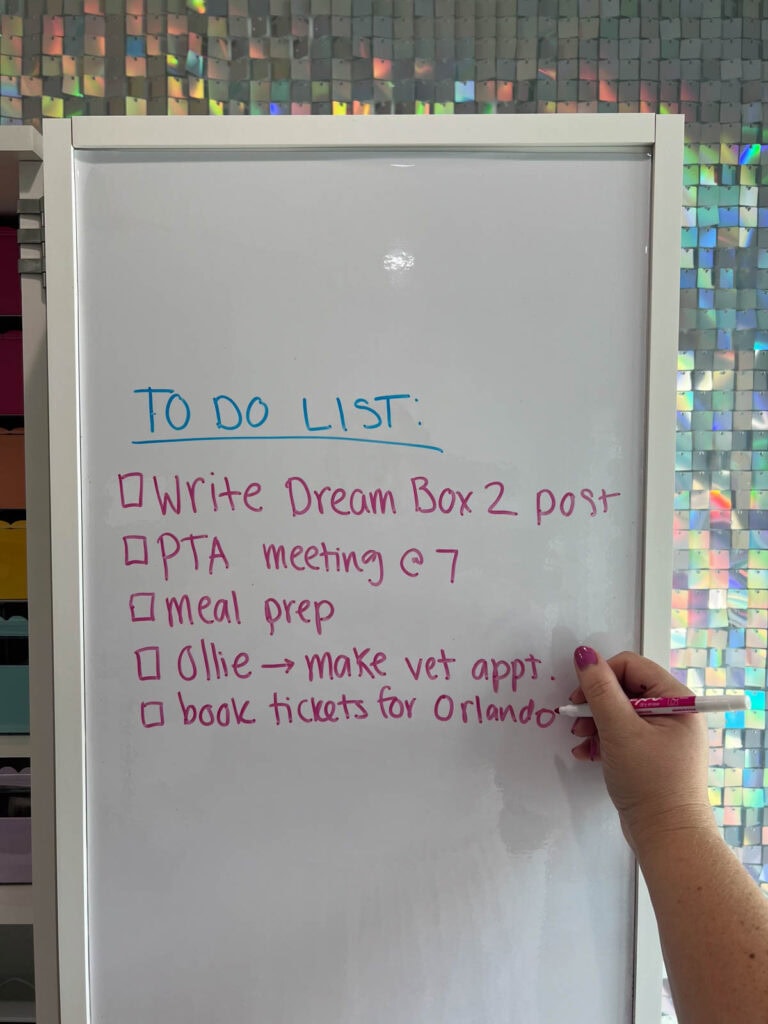 TO DO LIST:
□ Write Dream Box 2 post
□ PTA meeting @ 7
□ meal prep
□ Ollie → make vet appt.
□ book tickets for Orlando